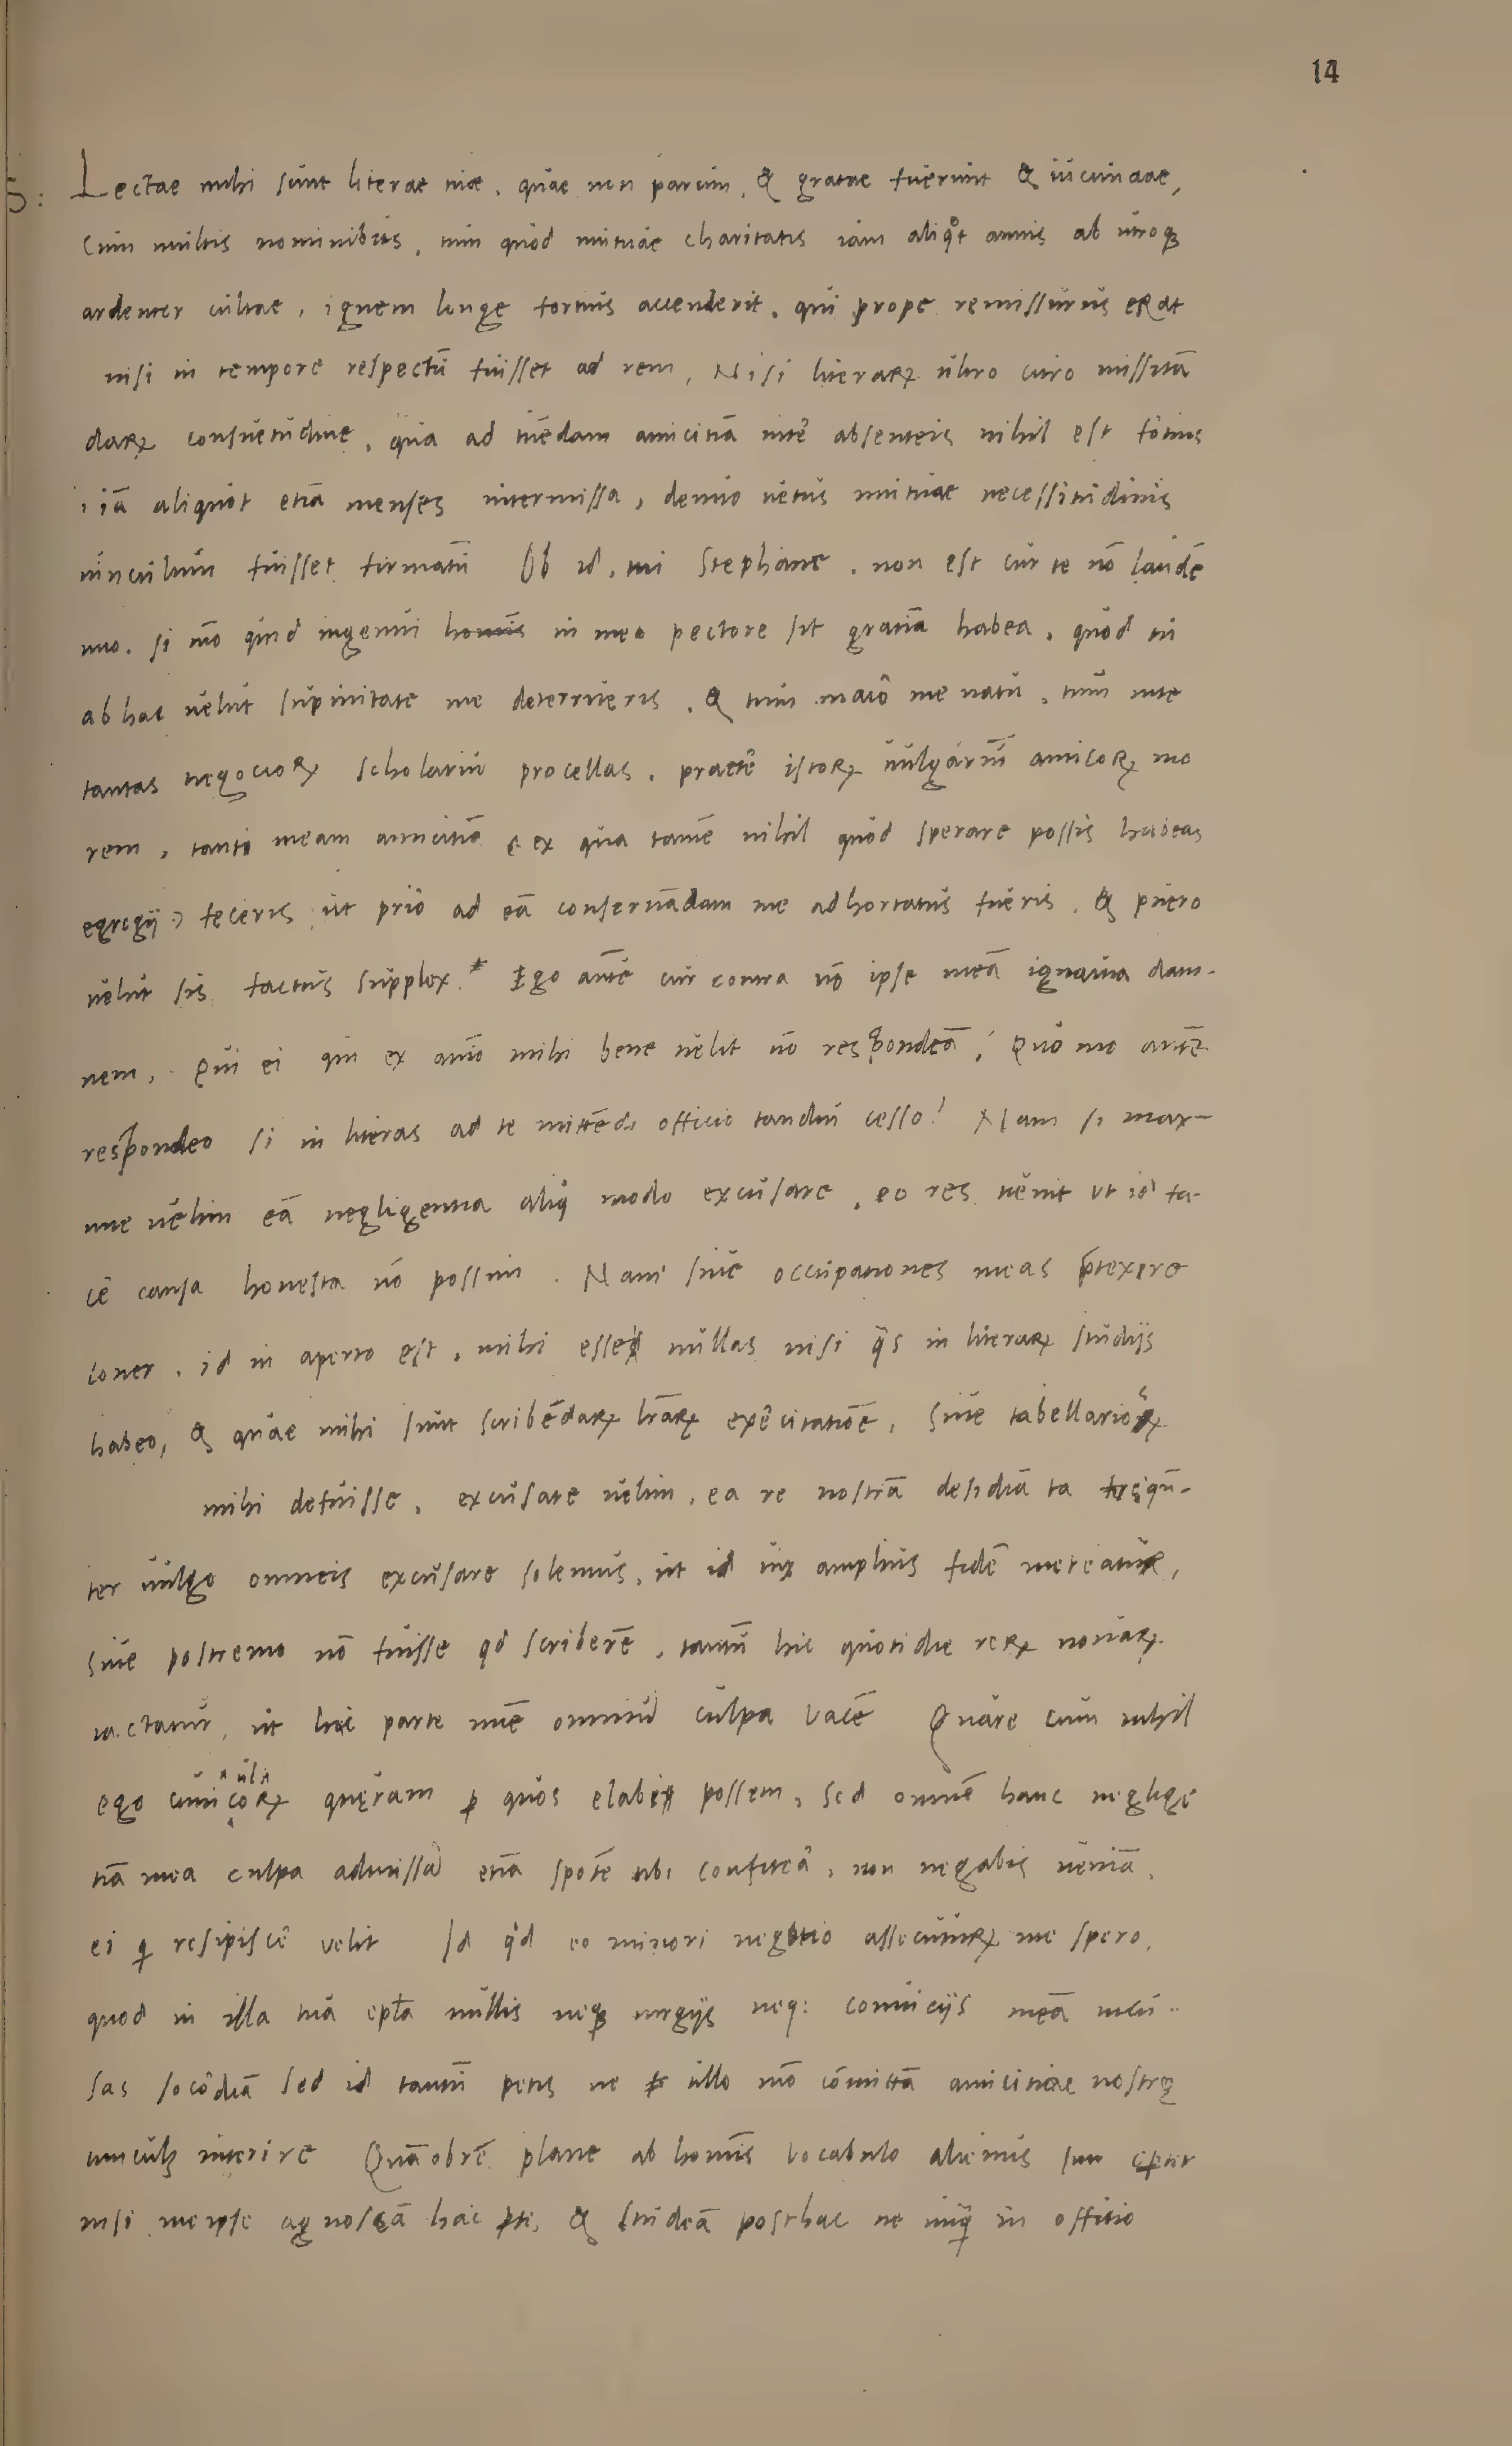 14
S: Lectae mihi sunt literae tuae, quae non parum, & gratae fuerunt & iucundae,
Cum multis nominibus, tum quod mutuae charitatis iam aliqot annis ab utroqꝫ
ardenter cultae, ignem longe fortius accenderit, qui prope remissurus erat
nisi in tempore respectū fuisset ad rem, Nisi literarꝝ ultro citro missitā
darꝝ consuetudine, qua ad tuēdam amicitiā inter̄ absenteis nihil est fōtius
iā aliquot etiā menses intermissa, denuo uetus mutuae necessitudinis
uinculum fuisset firmatū Ob id, mi Stephane, non est cur te nō laudē
mo. si mō quid ingenui hominis in meo pectore sit gratiā habea, quod tu
ab hac uelut supinitate me deterrueris, & tum maiō me natu, tum inte
tantas negociorꝝ scholariū procellas, praetē istorꝝ uulgāriū amicorꝝ mo
rem, tanti meam amicitiā ex qua tamē nihil quod sperare possis habeas
egregij feceris, ut priō ad eā conseruādam me adhortatus fueris, & puero
uelut sis factus supplex. Ego autē cur contra nō ipse meā ignauia dam-
nem, Qui ei qui ex aīo mihi bene uelit nō respondeā, Quo mo autē
respondeo si in literas ad te mittēdi officio tandiu cesso? Nam si maxi-
me uelim eā negligentia aliq modo excusare, eo res uenit ut id fa-
cē causa honesta nō possim. Nam siue occupationes meas ptexere
coner, id in aperto est, mihi esse nullas nisi qs in literarꝝ studijs
habeo, & quae mihi sunt scribēdarꝝ lrārꝝ exēcitatiōe, Siue tabellarios
mihi defuisse, excusare uelim, ea re nostrā desidiā ta freqū-
ter uulgo omneis excusare solemus, ut id uix amplius fidē mereatur,
siue postremo nō fuisse qd scriberē, tantū hic quotidie rerꝝ nouarꝝ
iactatur, ut hac parte mīe omnīu culpa vacē Quare cum nihil
ego cuniculorꝝ quęram p quos elabi possem, sed omnē hanc neglige
tiā mea culpa admissā etiā spōte tibi confiteā, non negabis ueniā,
ei q resipiscē velit Id qd eo minori negotio assecuturꝝ me spero,
quod in illa tua epla nullis neqꝫ iurgijs neq: conuicijs meā incu-
sas socōdiā sed id tantū petis ne illo mō cōmittā amicitiae nostrę
uinculꝫ interire Quāobrē plane ab homīs vocabulo alienus sim
nisi meipse agnoscā hac pte, & studeā posthac ne unq in officio